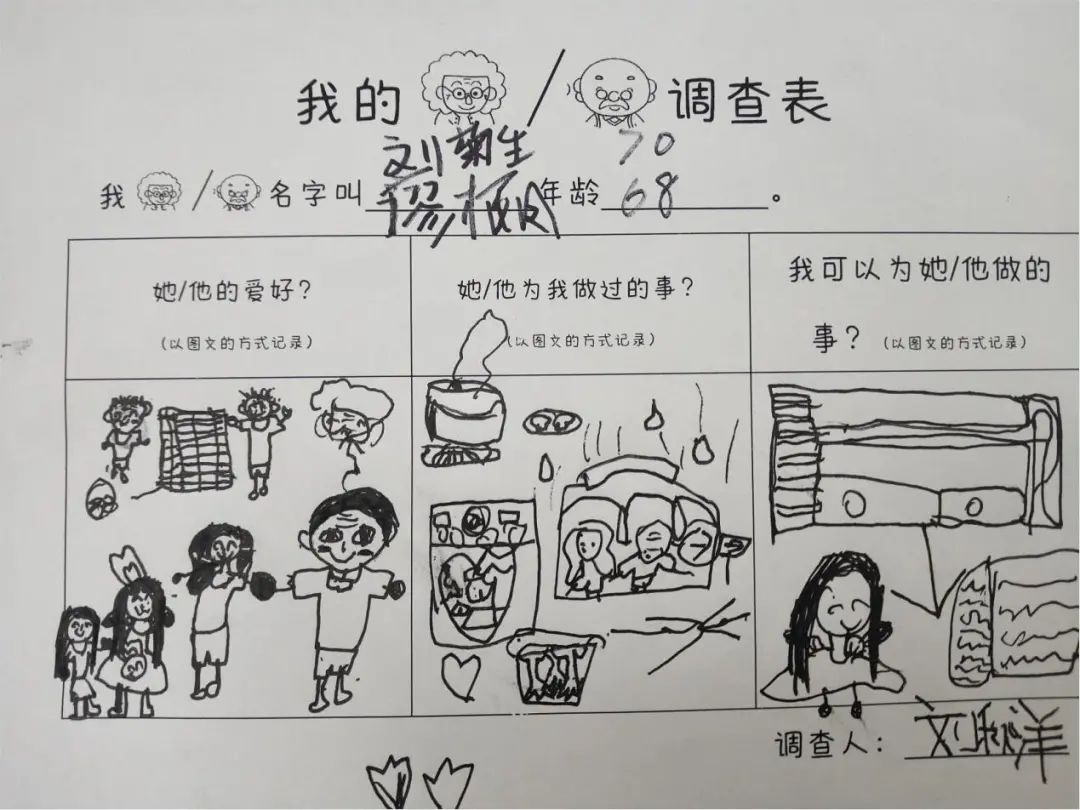 我的 / 调查表
刘菊生 70
我 / 名字叫 年龄 68 。
她/他的爱好？
（以图文的方式记录）
她/他为我做过的事？
（以图文的方式记录）
我可以为她/他做的
事？（以图文的方式记录）
调查人：刘洋